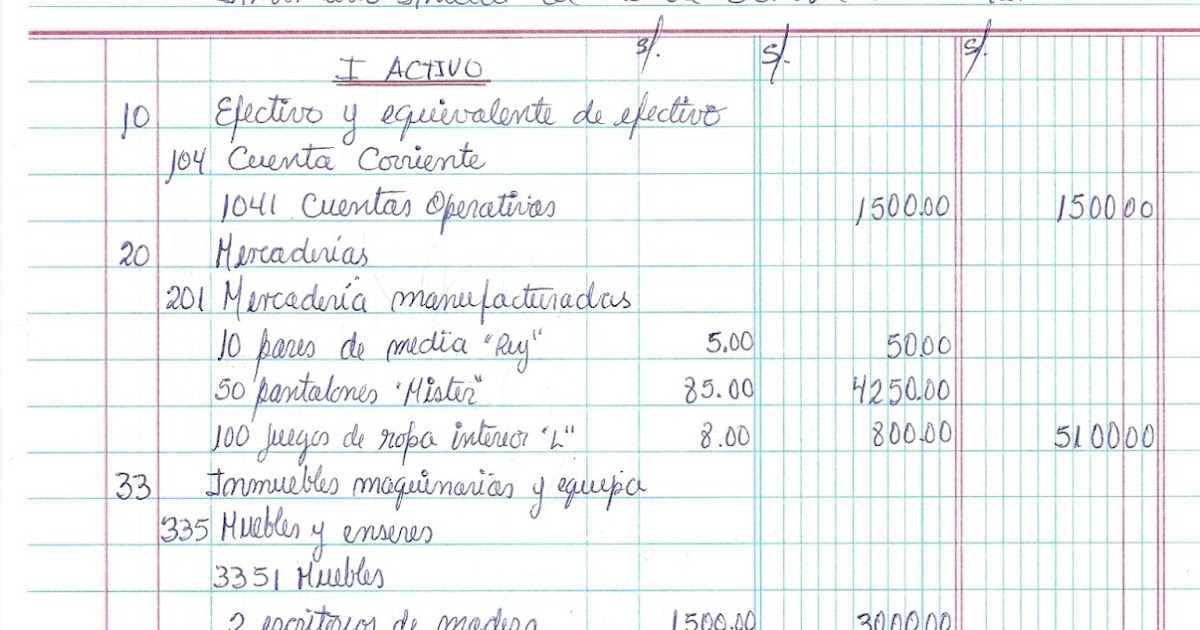 S/. S/. S/.
I ACTIVO
10 Efectivo y equivalente de efectivo
104 Cuenta Corriente
1041 Cuentas Operativas 1500.00 1500 00
20 Mercaderías
201 Mercadería manufacturadas
10 pares de media "Rey" 5.00 50.00
50 pantalones "Mister" 85.00 4250.00
100 juegos de ropa interior "L" 8.00 800.00 5100 00
33 Inmuebles maquinarias y equipo
335 Muebles y enseres
3351 Muebles
2 escritorios de madera 1500.00 3000.00